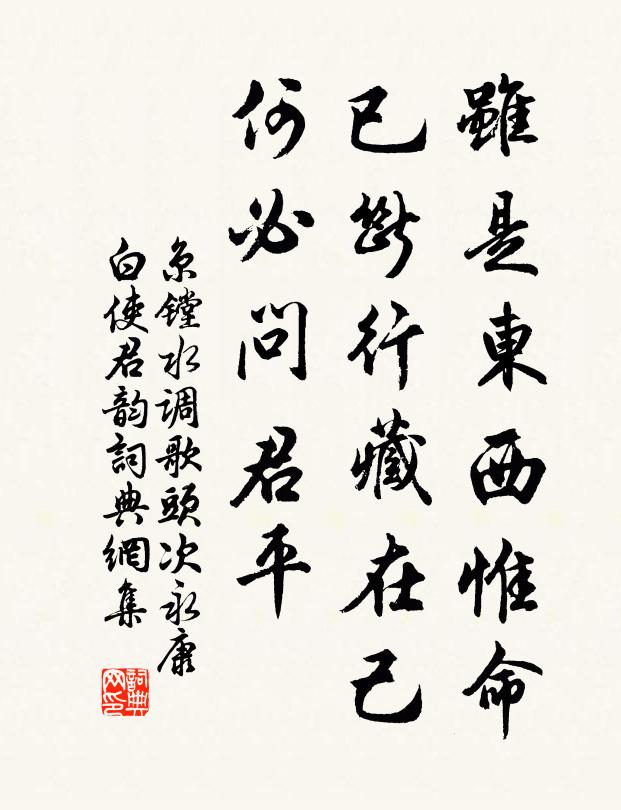 雖是東西惟命
已斷行藏在己
何必問君平
京鏜水调歌頭次永康
白使君韵詞典網集
詞典网印